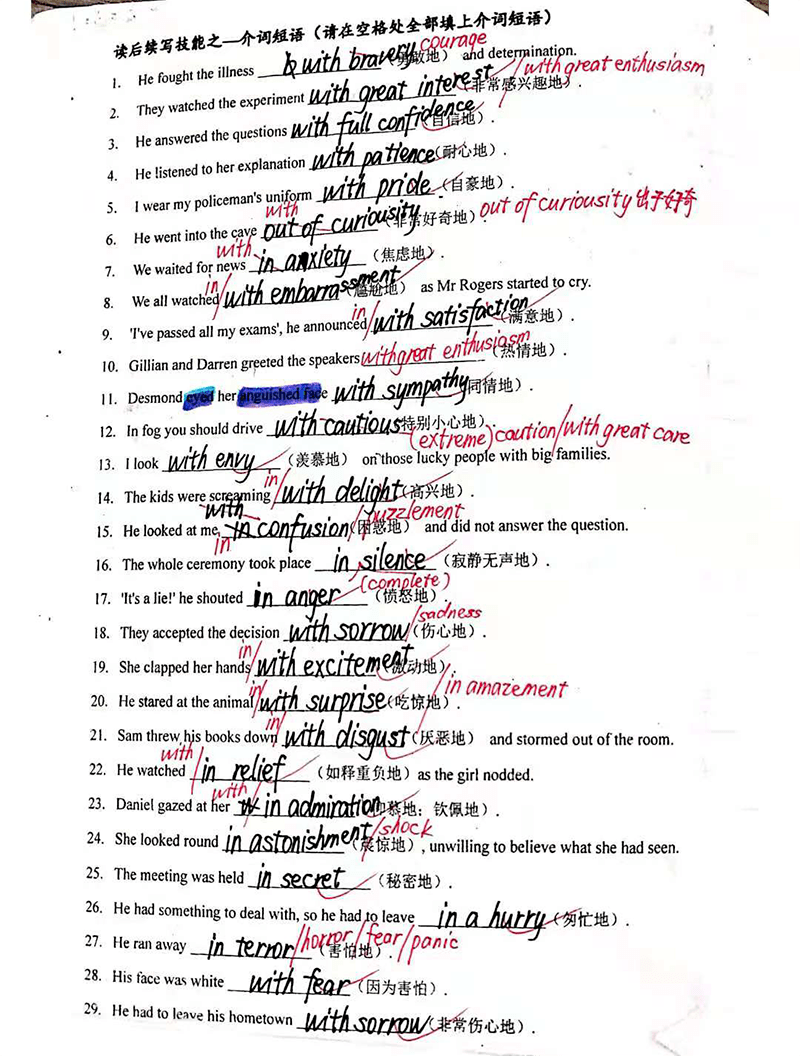 读后续写技能之一介词短语（请在空格处全部填上介词短语）
1. He fought the illness with bravery courage （勇敢地） and determination.
2. They watched the experiment with great interest /with great enthusiasm （非常感兴趣地）.
3. He answered the questions with full confidence （自信地）.
4. He listened to her explanation with patience （耐心地）.
5. I wear my policeman's uniform with pride （自豪地）.
6. He went into the cave with out of curiousity （非常好奇地）. out of curiousity 出于好奇
7. We waited for news with in anxiety （焦虑地）.
8. We all watched in/ with embarrassment （尴尬地） as Mr Rogers started to cry.
9. 'I've passed all my exams', he announced in/ with satisfaction （满意地）.
10. Gillian and Darren greeted the speakers with great enthusiasm （热情地）.
11. Desmond eyed her anguished face with sympathy （同情地）.
12. In fog you should drive with cautious （特别小心地）.
(extreme) caution/with great care
13. I look with envy （羡慕地） on those lucky people with big families.
14. The kids were screaming in/ with delight （高兴地）.
15. He looked at me, with in in confusion /puzzlement （困惑地） and did not answer the question.
16. The whole ceremony took place in silence （寂静无声地）.
17. 'It's a lie!' he shouted in (complete) anger （愤怒地）.
18. They accepted the decision with sorrow /sadness （伤心地）.
19. She clapped her hands in/ with excitement （激动地）.
20. He stared at the animal in/ with surprise （吃惊地）. /in amazement
21. Sam threw his books down in/ with disgust （厌恶地） and stormed out of the room.
22. He watched with/ in relief （如释重负地）as the girl nodded.
23. Daniel gazed at her with in admiration （仰慕地；钦佩地）.
24. She looked round in astonishment /shock （震惊地）, unwilling to believe what she had seen.
25. The meeting was held in secret （秘密地）.
26. He had something to deal with, so he had to leave in a hurry （匆忙地）.
27. He ran away in terror /horror/fear/panic （害怕地）.
28. His face was white with fear （因为害怕）.
29. He had to leave his hometown with sorrow （非常伤心地）.